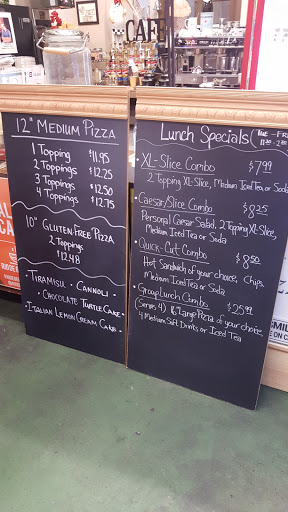 CAFE
12" MEDIUM PIZZA
1 Topping $11.95
2 Toppings $12.25
3 Toppings $12.50
4 Toppings $12.75
10" GLUTEN FREE PIZZA
2 Toppings
$12.48
• TIRAMISU • CANNOLI •
• CHOCOLATE TURTLE CAKE •
• ITALIAN LEMON CREAM CAKE •
Lunch Specials
• XL-Slice Combo $7.99
2 Topping XL-Slice, Medium Iced Tea or Soda
• Caesar/Slice Combo $8.25
Personal Caesar Salad, 2 Topping XL-Slice,
Medium Iced Tea or Soda
• Quick-Cut Combo $8.50
Hot Sandwich of your choice, Chips,
Medium Iced Tea or Soda
• Group Lunch Combo $25.99
(Serves 4) 16" Large Pizza of your choice,
4 Medium Soft Drinks or Iced Tea